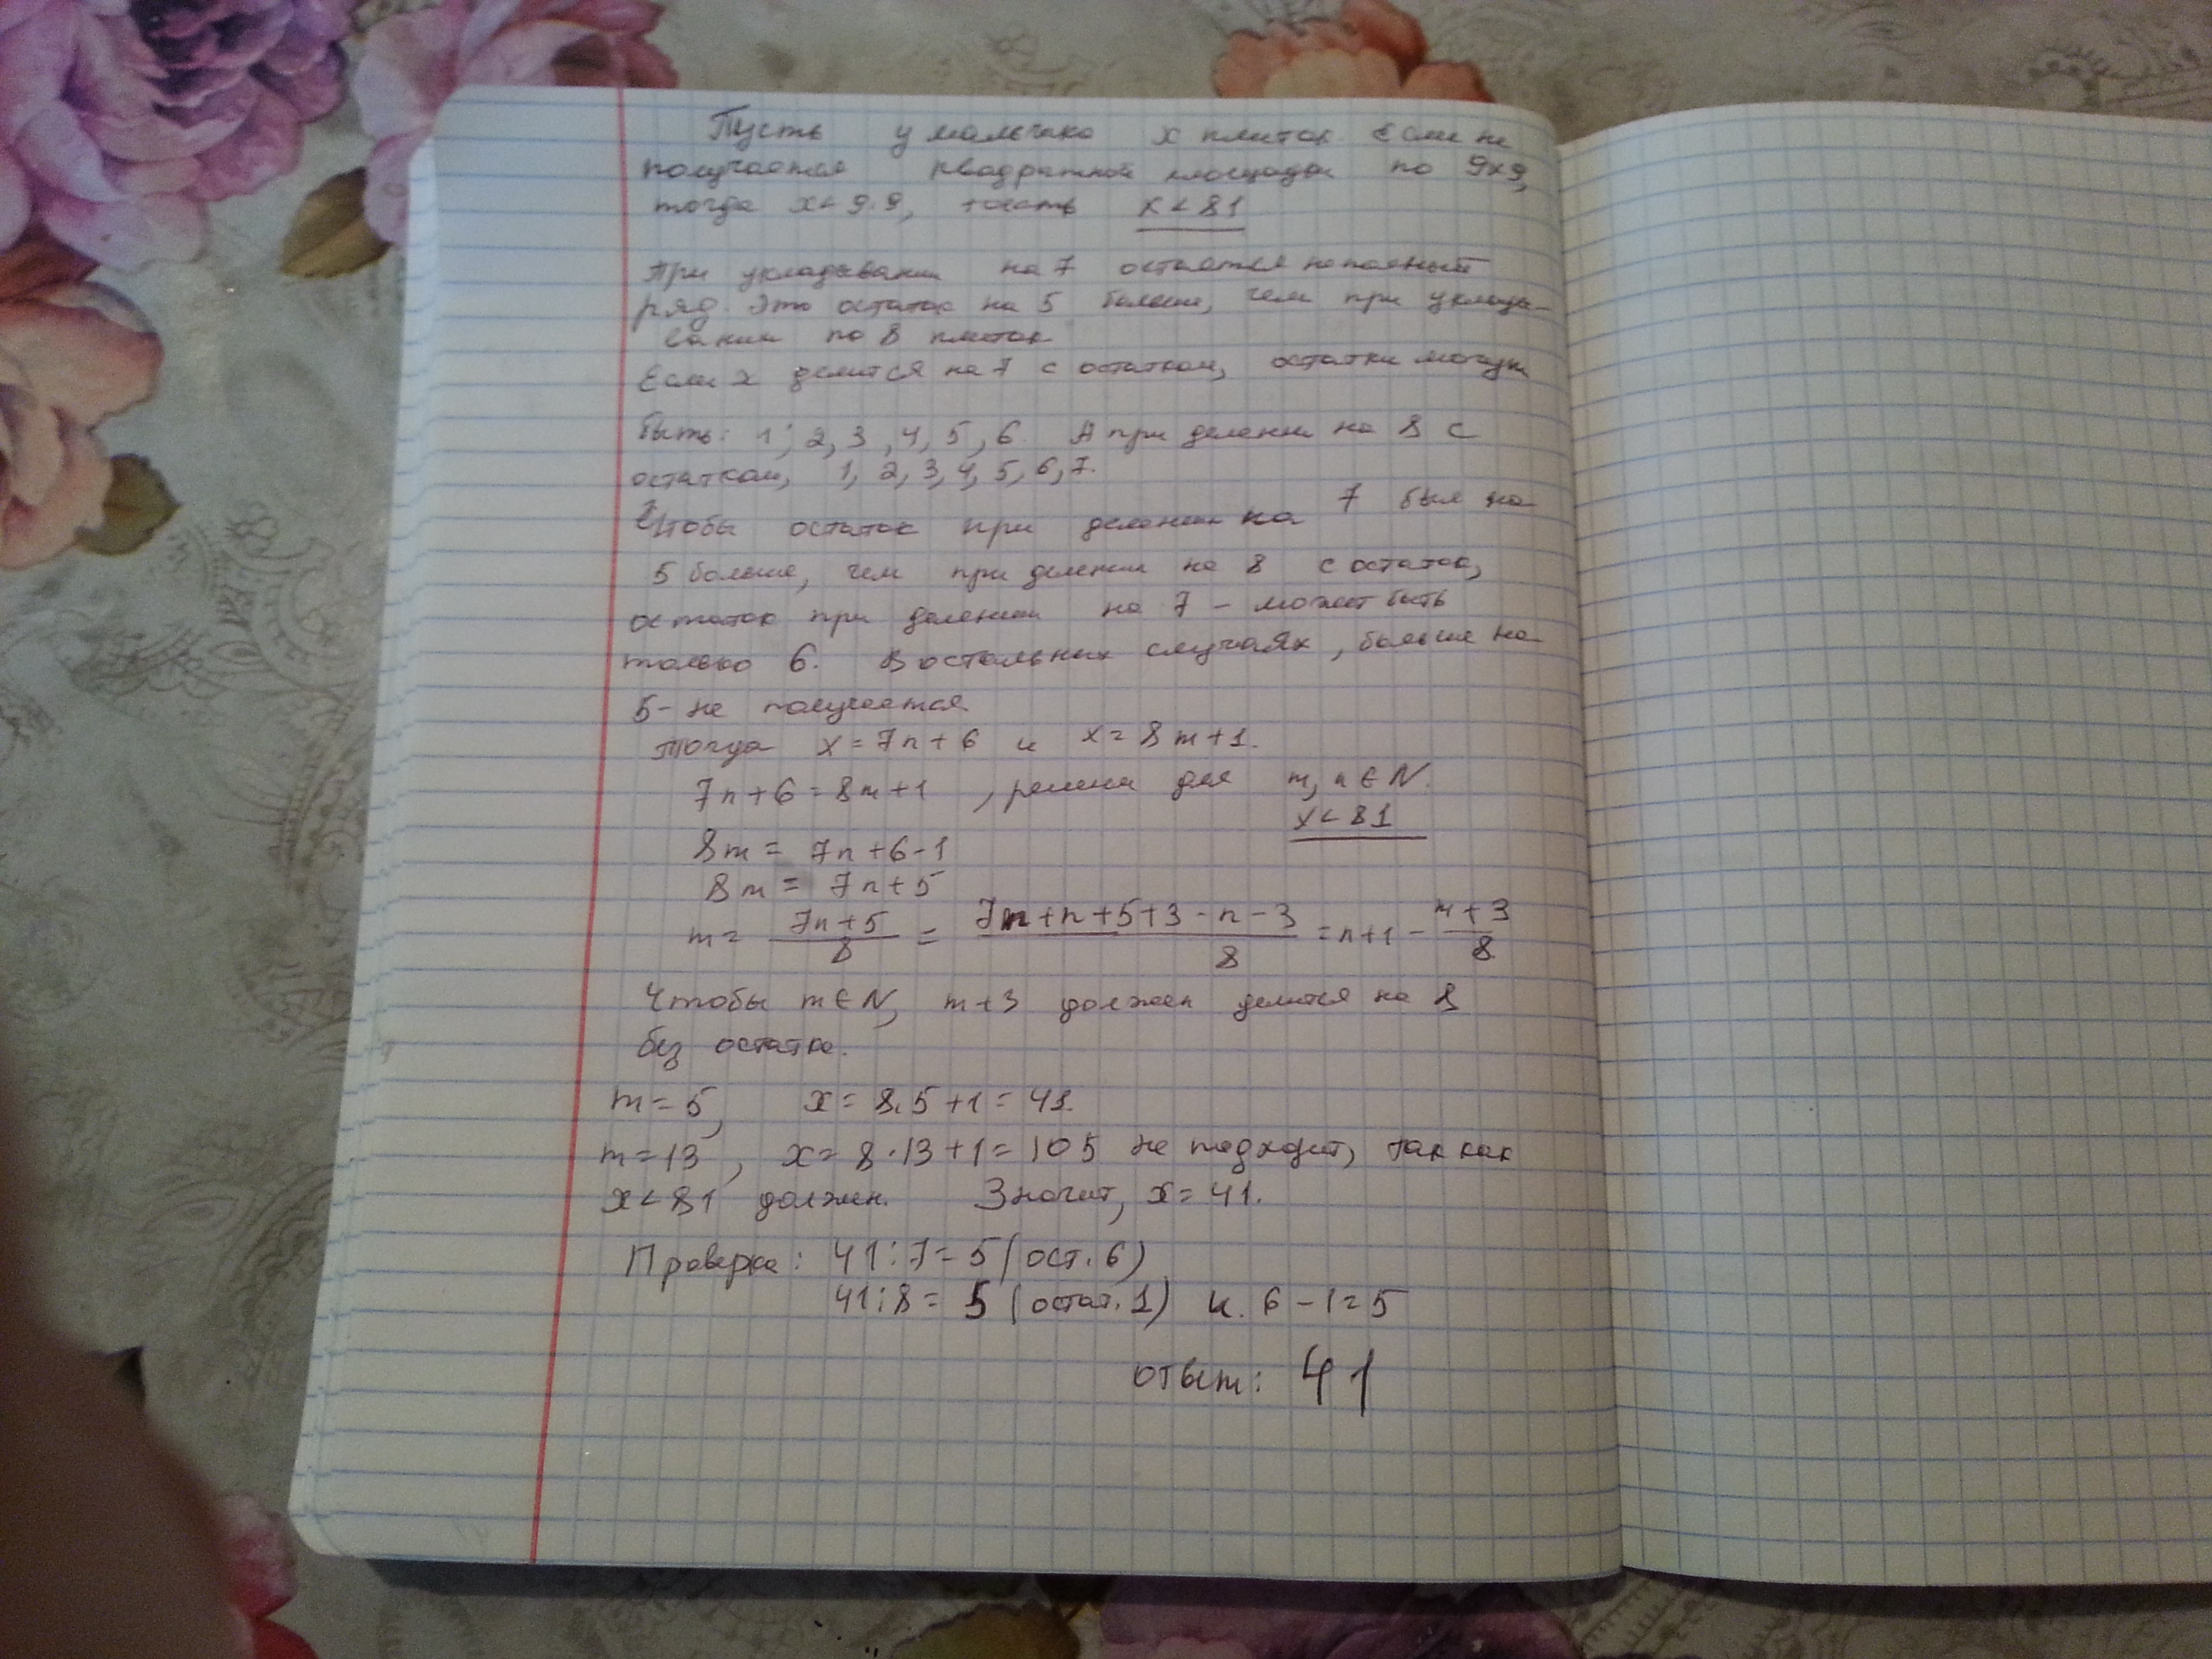 Пусть у мальчика x плиток. Если не
получается квадратной площади по 9x9,
тогда x < 9·9, то есть x < 81
При укладывании на 7 остается неполный
ряд. Это остаток на 5 больше, чем при уклады-
вании по 8 плиток
Если x делится на 7 с остатком, остатки могут
быть: 1; 2, 3, 4, 5, 6. А при делении на 8 с
остатком, 1, 2, 3, 4, 5, 6, 7.
Чтобы остаток при делении на 7 был на
5 больше, чем при делении на 8 с остаток,
остаток при делении на 7 - может быть
только 6. В остальных случаях, больше на
5- не получается
Тогда x = 7n+6 и x = 8m+1.
7n+6 = 8m+1 , решим для m, n ∈ N.
x < 81
8m = 7n+6-1
8m = 7n+5
m = \frac{7n+5}{8} = \frac{7n+n+5+3-n-3}{8} = n+1 - \frac{n+3}{8}
Чтобы m ∈ N, m+3 должен делится на 8
без остатка.
m = 5, x = 8·5+1 = 41.
m = 13, x = 8·13+1 = 105 не подходит, так как
x < 81 должен. Значит, x = 41.
Проверка: 41:7 = 5 (ост. 6)
41:8 = 5 (остат. 1) и. 6-1=5
ответ: 41